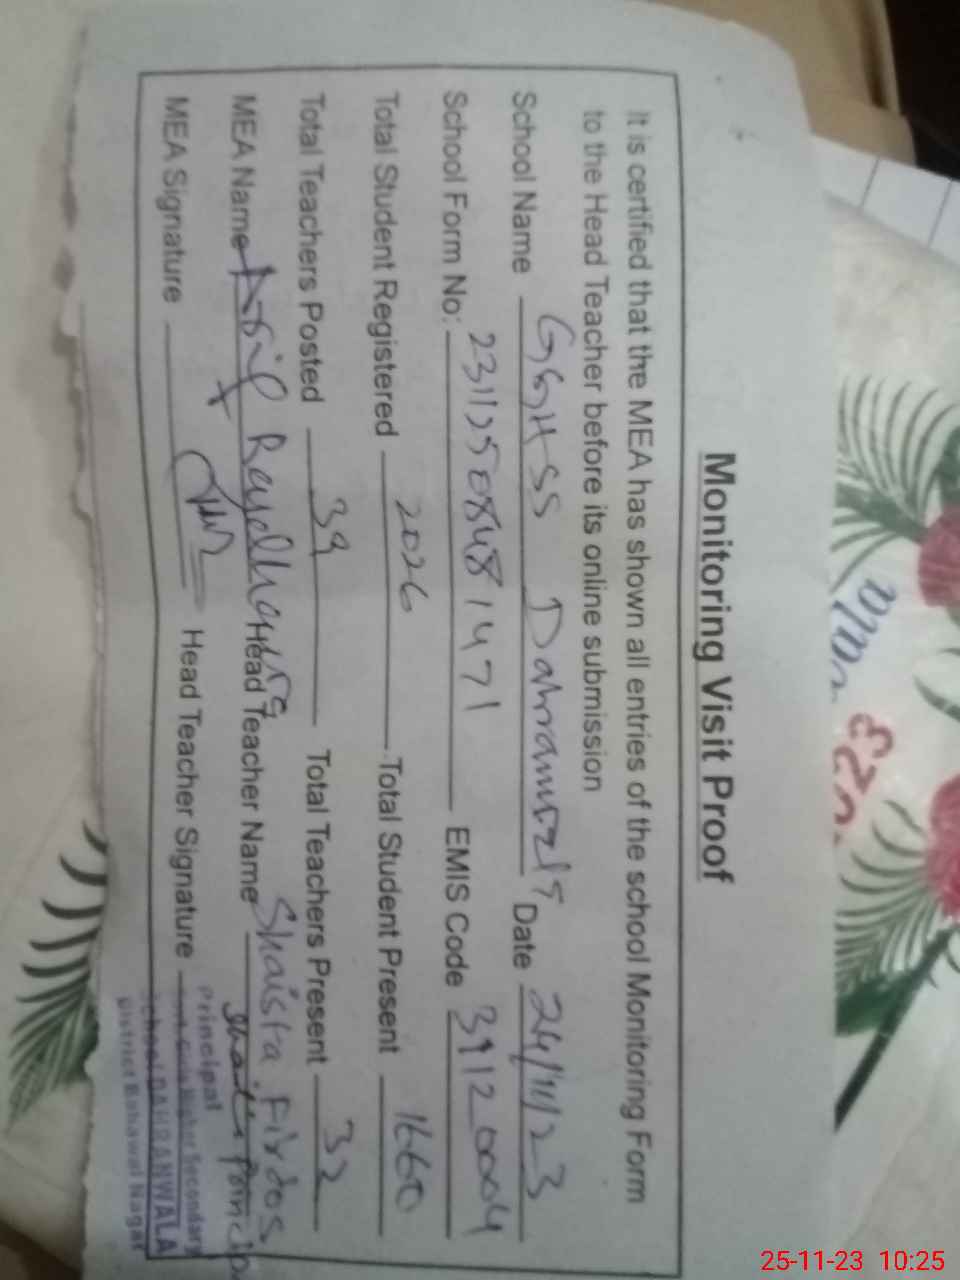 Monitoring Visit Proof
It is certified that the MEA has shown all entries of the school Monitoring Form
to the Head Teacher before its online submission
School Name GGHSS Date 24/11/23
School Form No: EMIS Code 31120004
Total Student Registered 2026 Total Student Present 1660
Total Teachers Posted 39 Total Teachers Present 32
MEA Name Head Teacher Name Shaista Firdos
MEA Signature Head Teacher Signature
Principal
Higher Secondary
School DAHRANWALA
District Bahawal Nagar
25-11-23 10:25